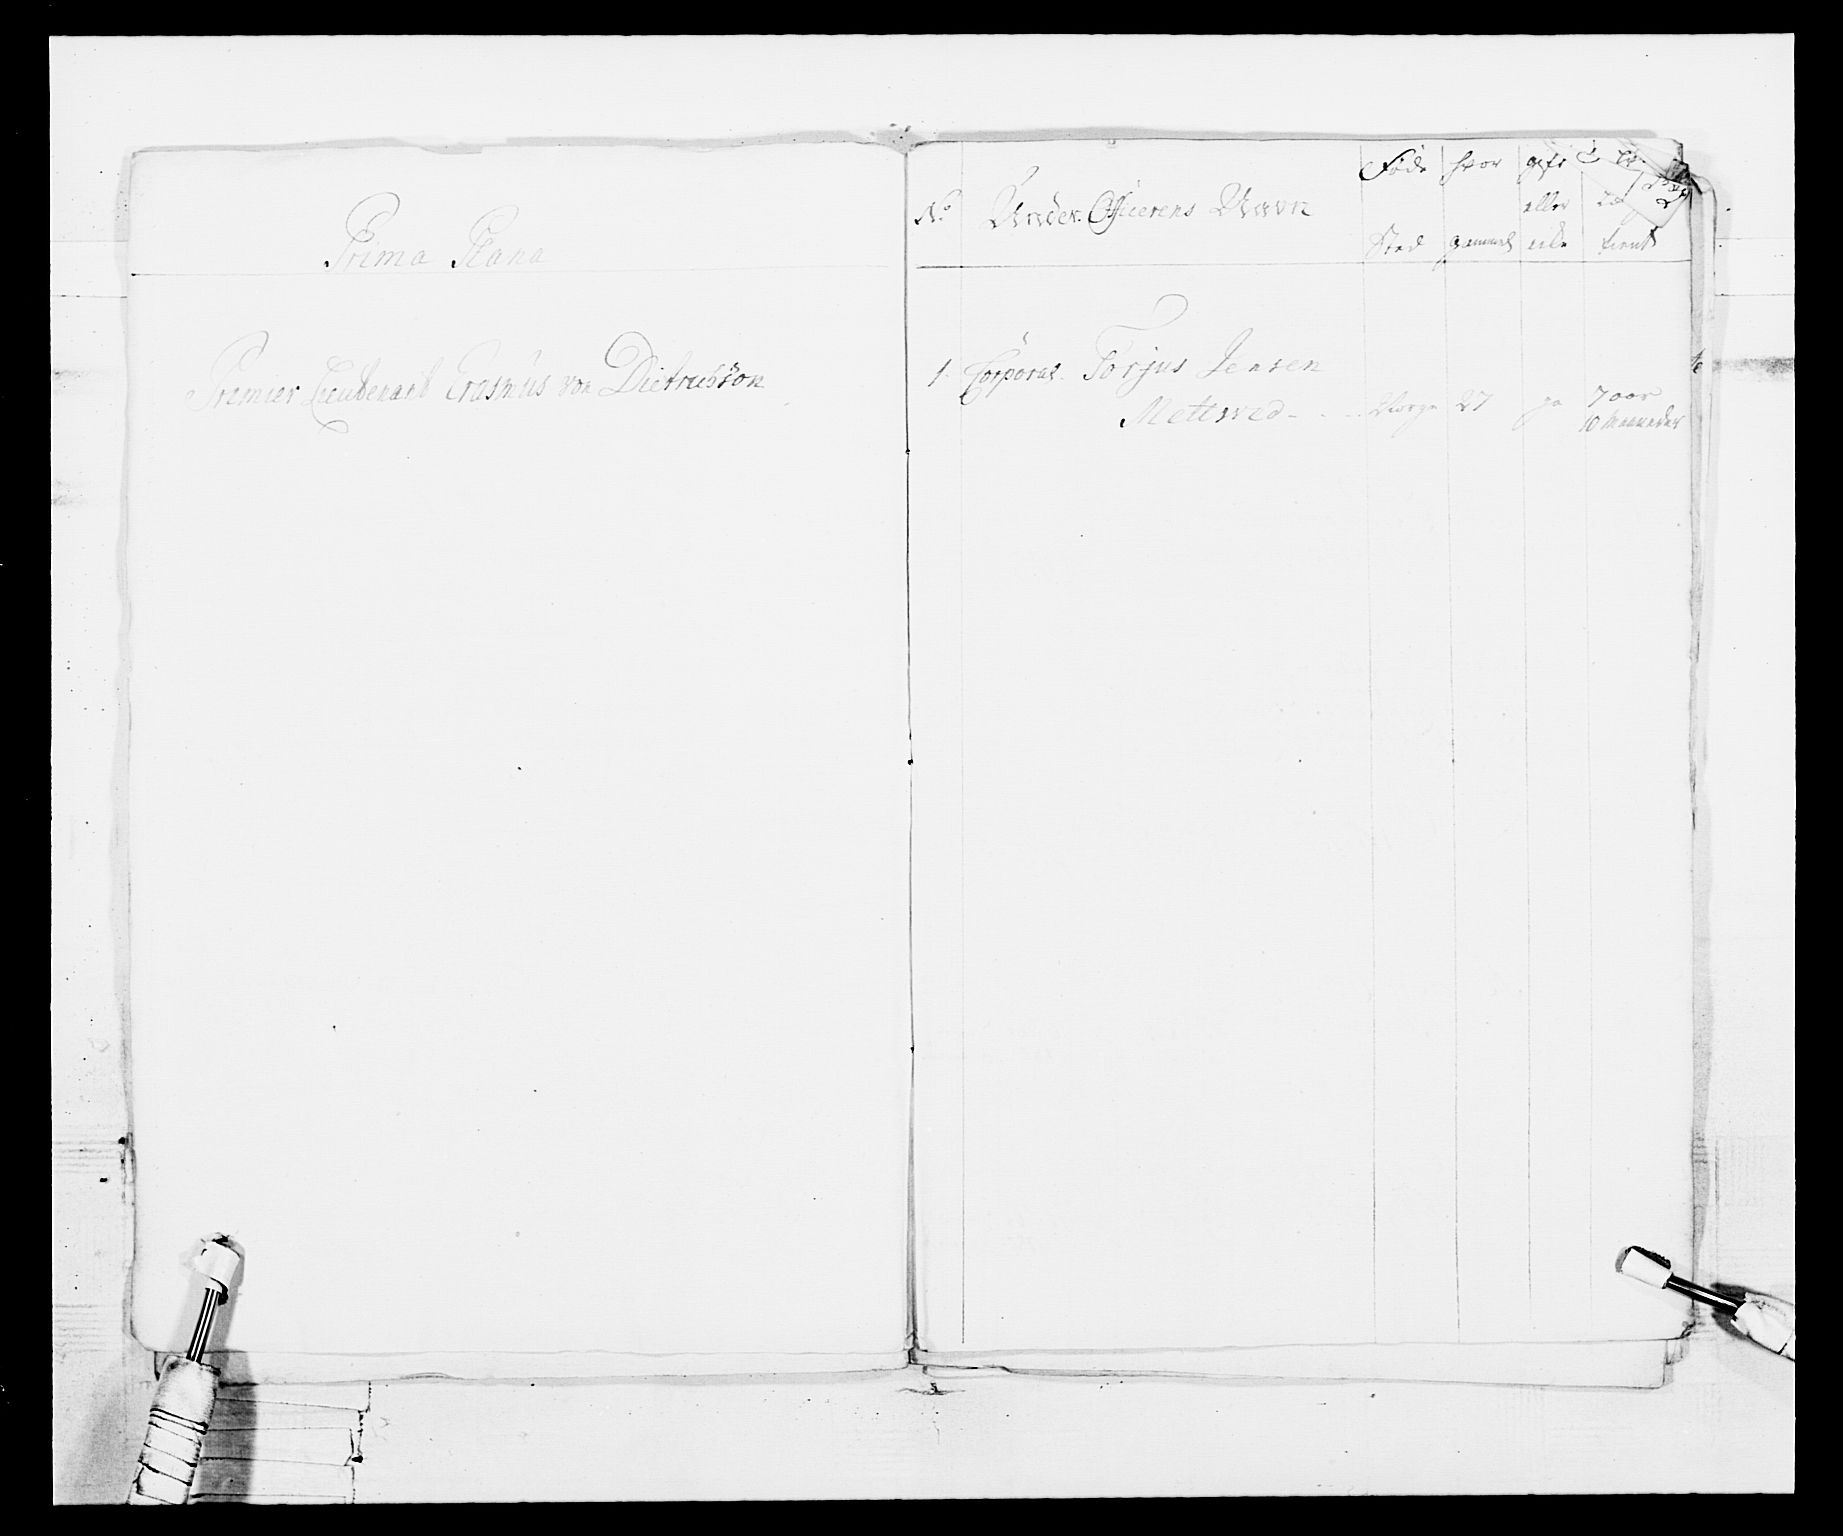 Prima Plana
Premier Lieutenant Erasmus von Dietrichson
No Under Officerens Navn
Føde Sted
hvor gammel
gift eller eike
tient
1. Corporal Torjus Jensen
Mettwed - - - Norge 27 ja 7 aar
10 Maaneder